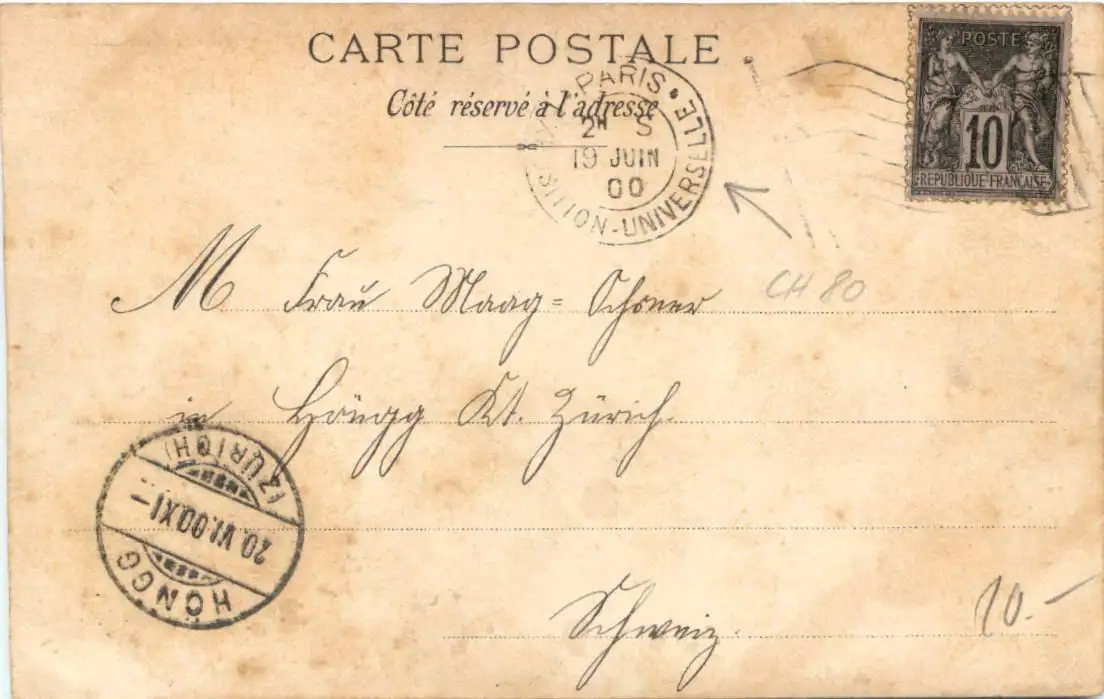 CARTE POSTALE
Côté réservé à l'adresse
PARIS
SITION-UNIVERSELLE
2H S
19 JUIN
00
POSTE
10
REPUBLIQUE FRANÇAISE
CH 80
M Frau Maag=Schoner
in Höngg Kt. Zürich.
(ZÜRICH)
20.VI.00.XI-
HÖNGG
Schweiz.
10.-